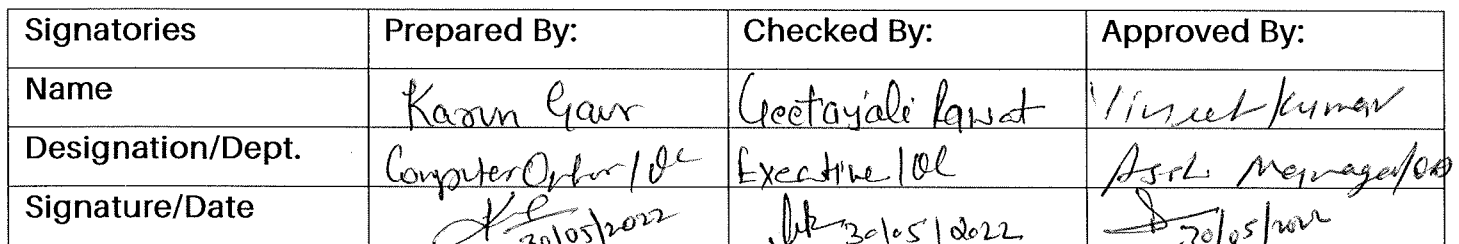 Signatories Prepared By: Checked By: Approved By:
Name Karun Gaur Geetayali Rawat Vineet Kumar
Designation/Dept. Computer / Executive / Asst. Manager/
Signature/Date 30/05/2022 30/05/2022 30/05/2022